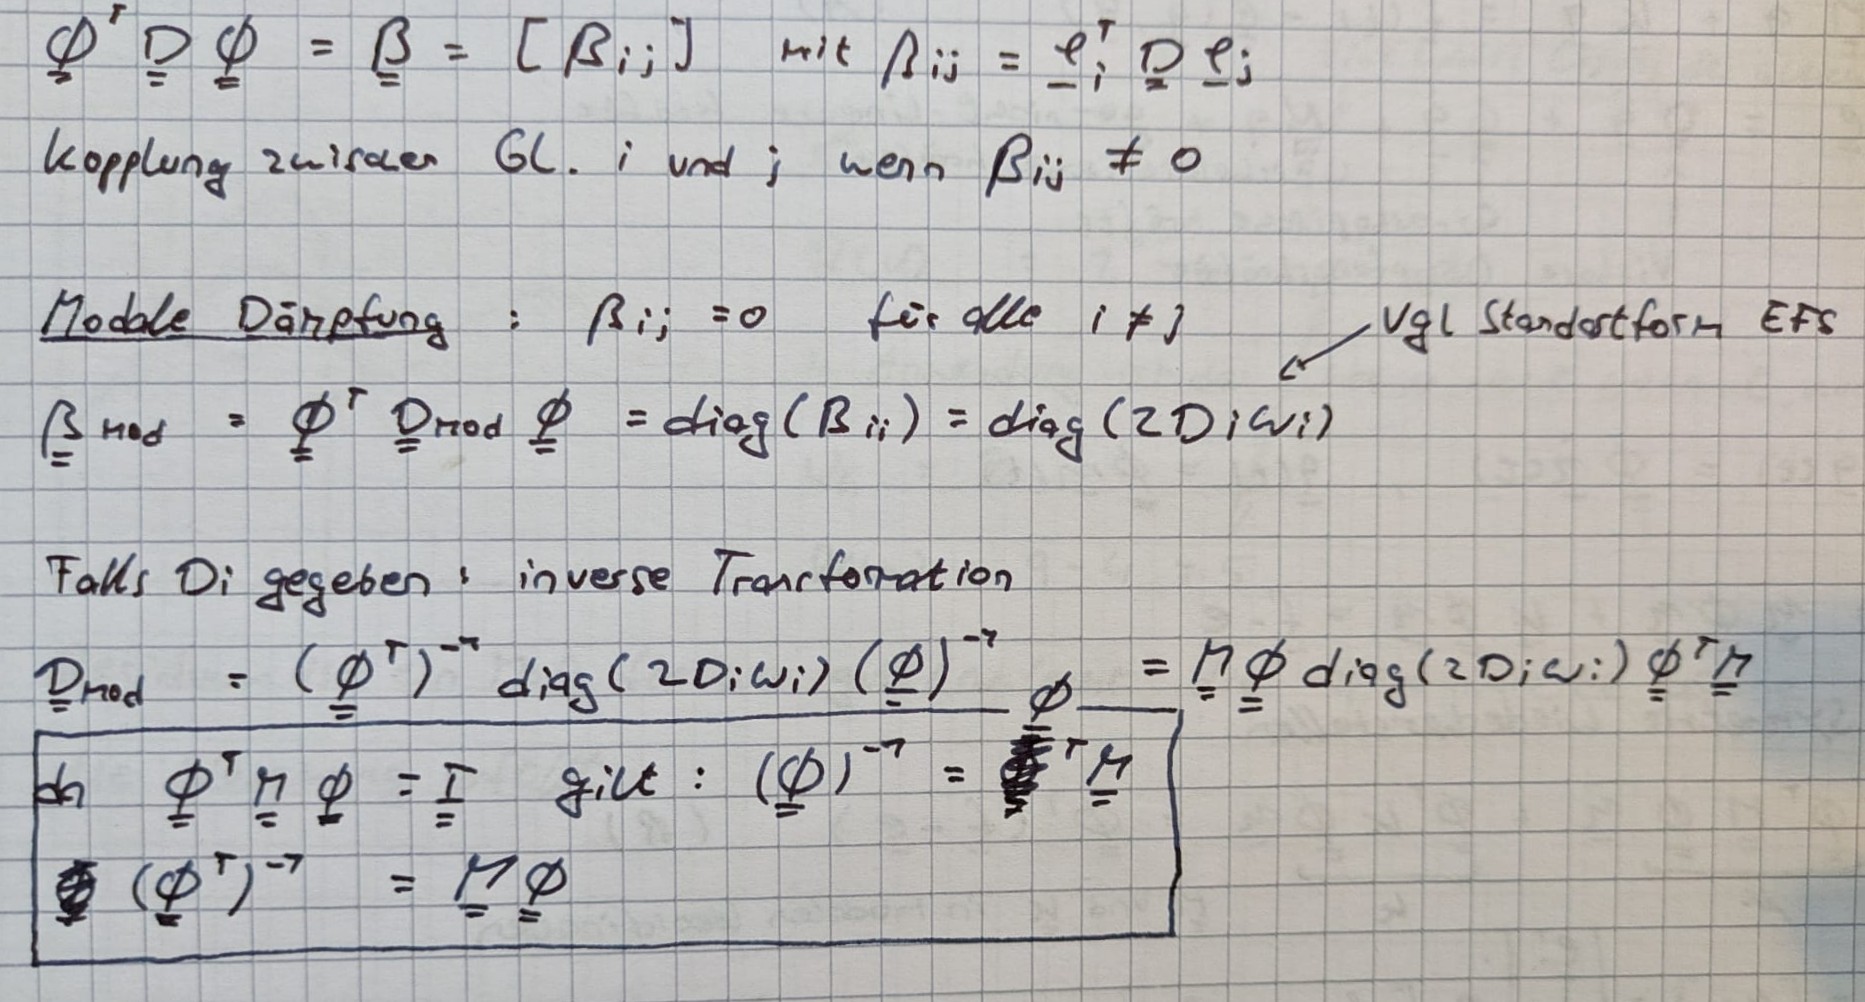 Φ^T D Φ = β = [β_ij] mit β_ij = φ_i^T D φ_j
Kopplung zwischen Gl. i und j wenn β_ij ≠ 0
Modale Dämpfung : β_ij = 0 für alle i ≠ j
vgl Standartform EFS
β_mod = Φ^T D_mod Φ = diag(β_ii) = diag(2D_iω_i)
Falls Di gegeben : inverse Transformation
D_mod = (Φ^T)^-1 diag(2D_iω_i) (Φ)^-1 = M Φ diag(2D_iω_i) Φ^T M
da Φ^T M Φ = I gilt : (Φ)^-1 = Φ^T M
(Φ^T)^-1 = M Φ